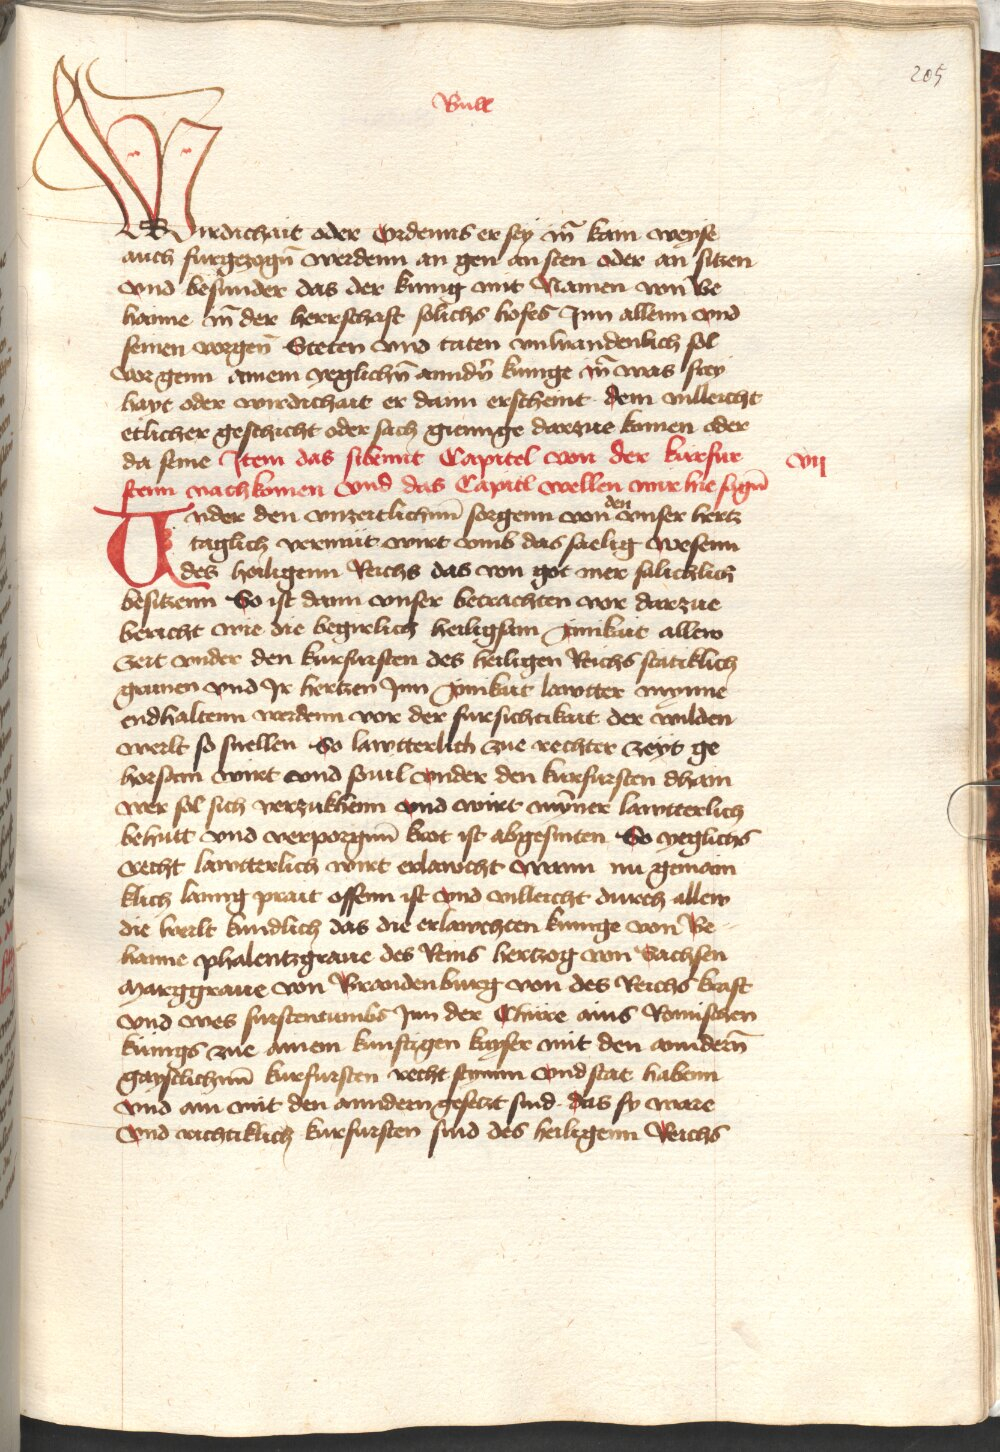 205
Bull
Wirdichait oder Ordenns er sey in̄ kain weyse
auch furgezogn̄ werdenn an gen an sten oder an sitzen
vnd besunder das der kunig mit Namen von be
haime in̄ der herrschaft solichs hofes Jnn allenn vnd
seinen vorgen̄ Steten vnd taten vnwandenlich sol
vorgenn ainem yeglichn̄ anndn̄ kunige in̄ was frey
hayt oder wirdichait er dann erscheint dem villeicht
etlicher geschicht oder sach gienige darzue komen oder
da seine Jtem das sibennt Capitel von der kurfur
VII
stenn nachkomen vnd das Capitl wellen wir hie sagn̄
Vnder den vnzeitlichnn̄ sorgenn von den vnser hertz
taglich vermüt wirt vmb das saelig wesenn
des heiligenn Reichs das von got mer salichlich
besitzenn So ist dann vnser betrachten vor darzue
bericht wie die begirlich heiligsam ainikait allew
zeit vnder den kurfursten des heiligen Reichs statiklich
grunen vnd Jr hertzen Jnn ainikait lawtter mynne
endhaltenn werdenn vor der fursichtikait der wilden
werlt so snellen So lawtterlich zue rechter zeyt ge
horsam wirt vnd souil vnder den kurfursten dhain
wer sol sich verzukhenn vnd wirt mynner lawtterlich
behutt vnd verporgnn̄ krot ist abgesniten So yeglichs
recht lawtterlich wirt erlawcht Wann nu gemain
klich lanng prait offenn ist vnd villeicht durch allew
die werlt kundlich das die erlawchten kunige von Be
haime phalentzgraue des Reins hertzog von Sachsen
Marggraue von Brandenburg von des Reichs kraft
vnd wes furstentumbs Jnn der Chure ains Romischen
kunigs zue ainem kunftigen kayser mit den anndern̄
gaystlichnn̄ kurfursten recht stymm vnd stat habenn
vnd ain mit den anndern gesetzt sind das sy ware
vnd richtiklich kurfursten sind des heiligenn Reichs